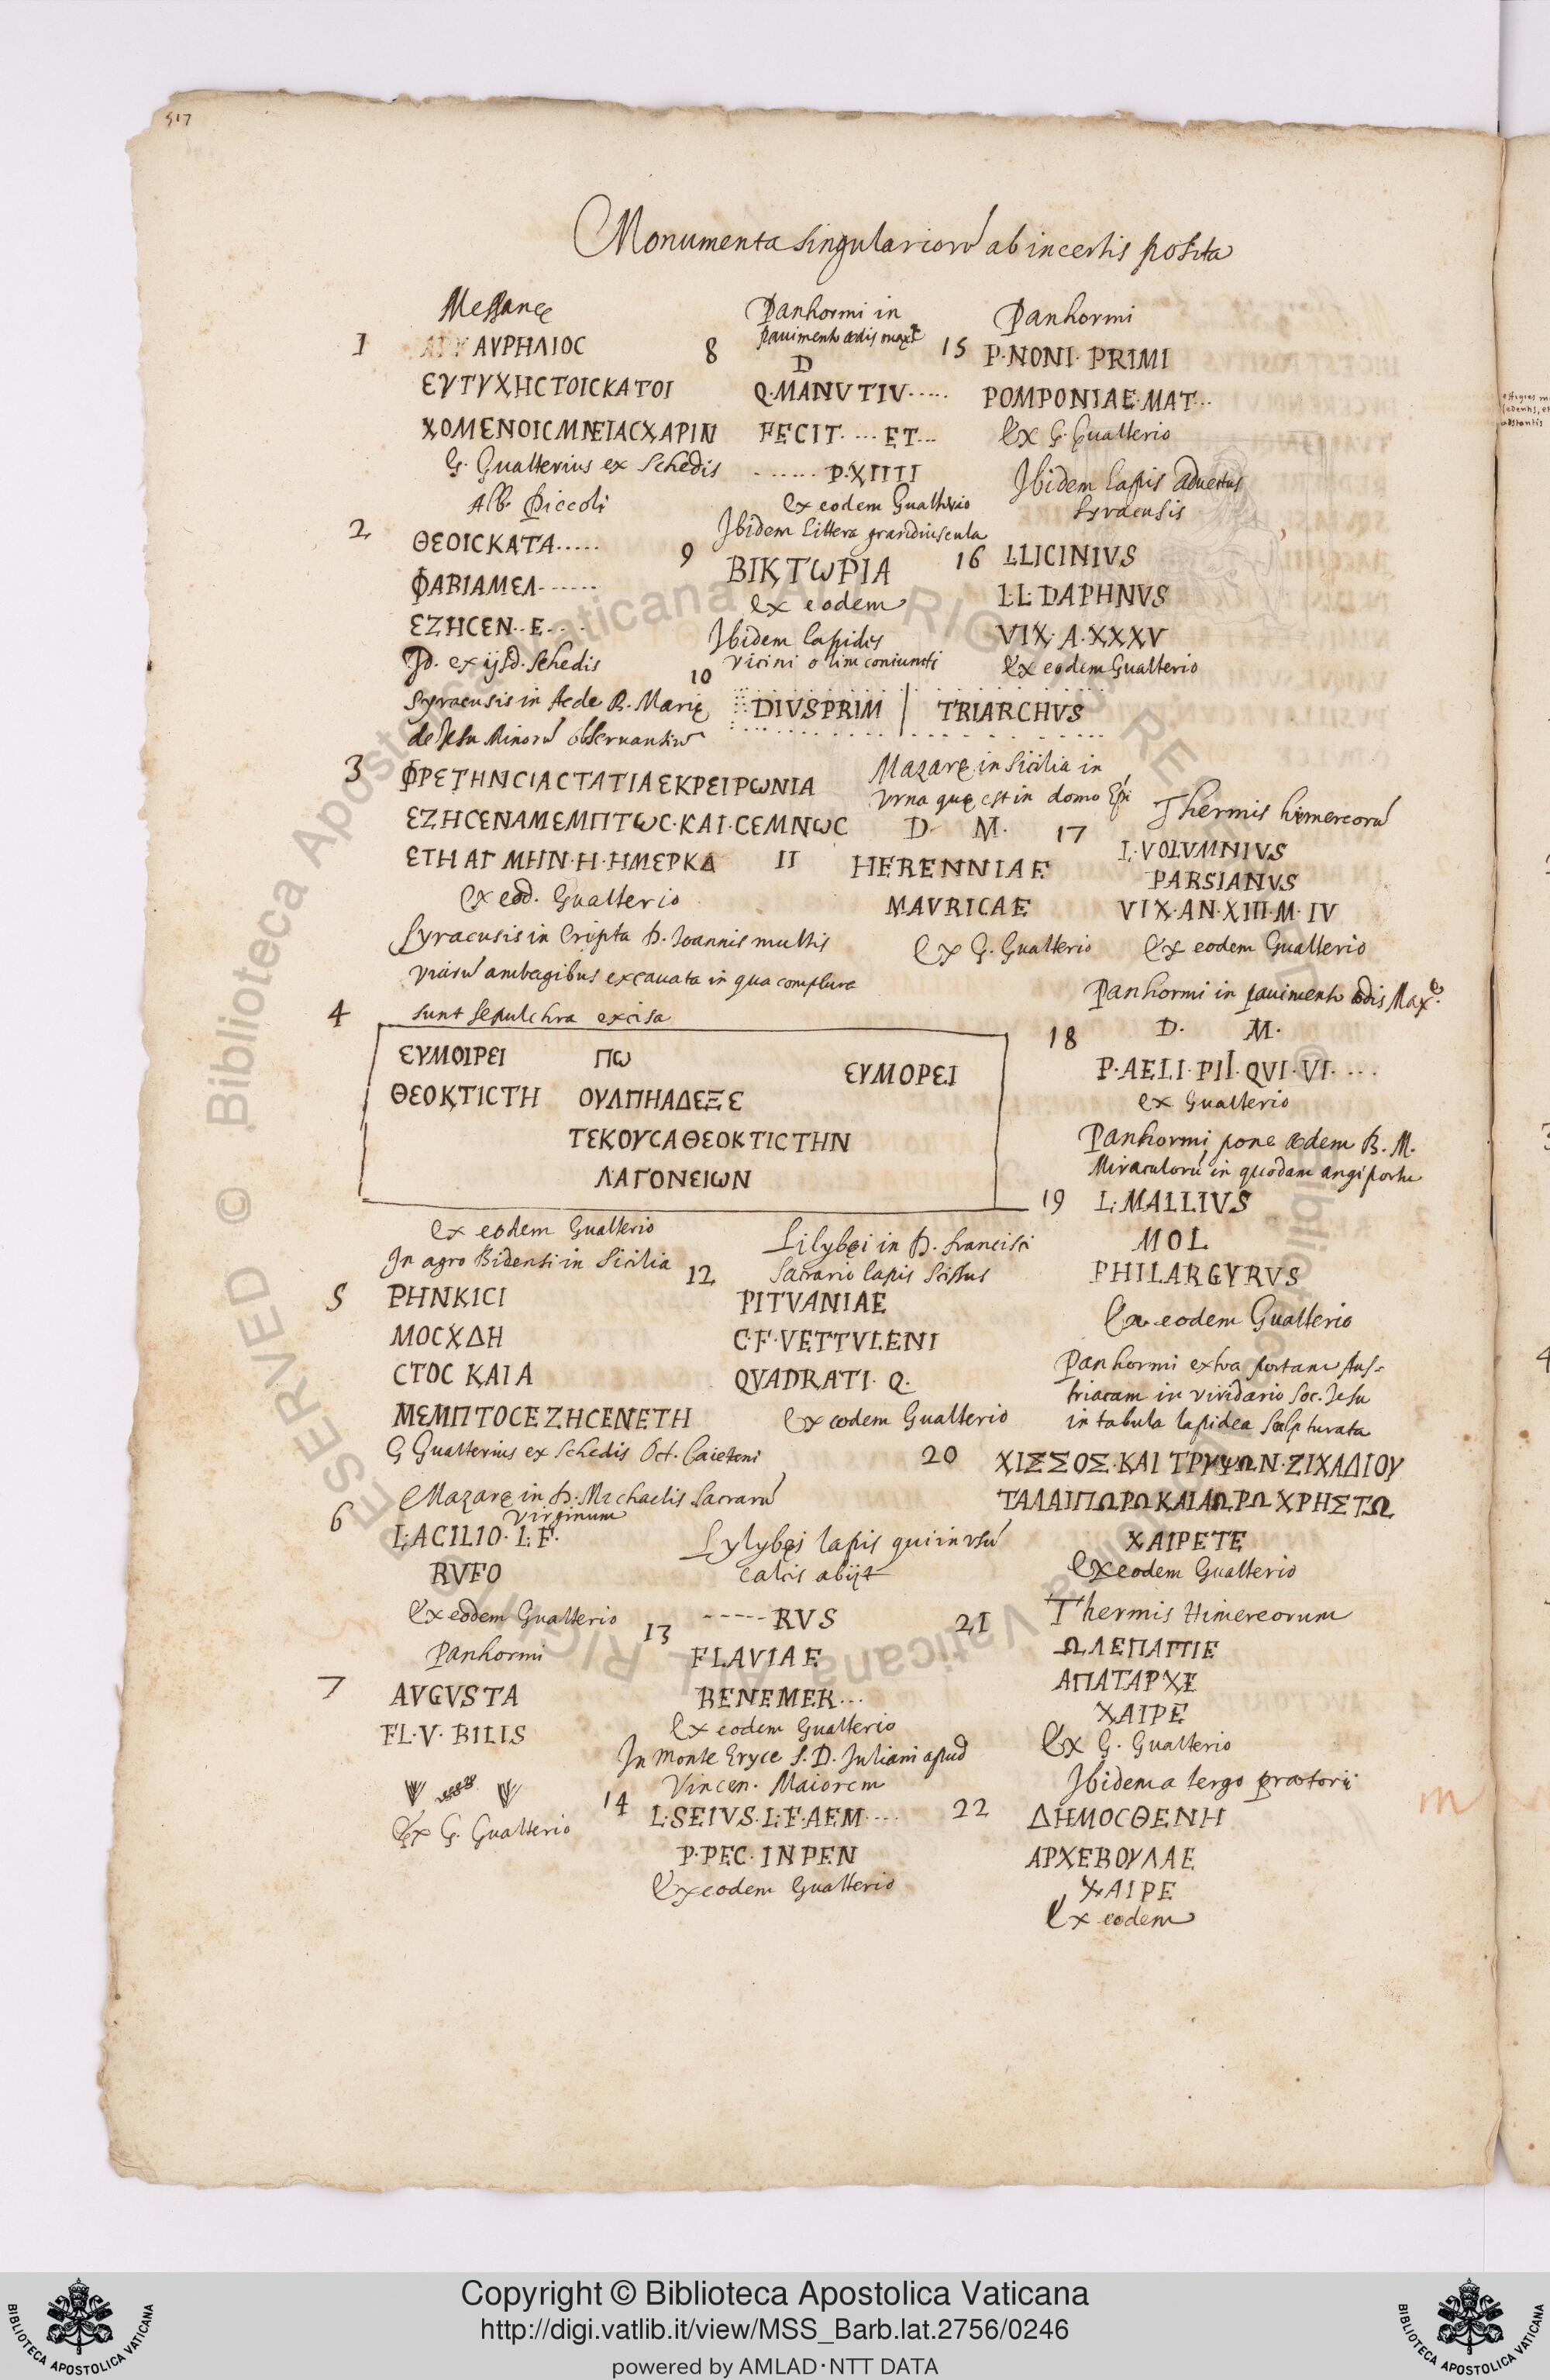 517
Monumenta singulariorũ ab incertis posita
Messanę
1
ΑΥΡΗΛΙΟC
ΕΥΤΥΧΗCΤΟΙCΚΑΤΟΙ
ΧΟΜΕΝΟΙCΜΝΕΙΑCΧΑΡΙΝ
G. Gualterius ex Schedis
Alb. Piccoli
2
ΘΕΟΙCΚΑΤΑ.....
ΦΑΒΙΑΜΕΛ......
ΕΖΗCΕΝ..Ε...
Id. ex ijsd. schedis
Syracusis in Aede B. Marię
de Jesu Minorũ observantiũ
3
ΦΡΕΤΗΝCΙΑCΤΑΤΙΑΕΚΡΕΙΡωΝΙΑ
ΕΖΗCΕΝΑΜΕΜΠΤωC·ΚΑΙ·CΕΜΝωC
ΕΤΗ ΑΓ ΜΗΝ·Η·ΗΜΕΡΚΔ
Ex eod. Gualterio
Syracusis in Cripta D. Ioannis multis
viarũ ambagibus excavata in qua complura
4
sunt sepulchra excisa
ΕΥΜΟΙΡΕΙ Πω ΕΥΜΟΡΕΙ
ΘΕΟΚΤΙCΤΗ ΟΥΛΠΗΑΔΕΞΕ
ΤΕΚΟΥCΑΘΕΟΚΤΙCΤΗΝ
ΛΑΓΟΝΕΙωΝ
Ex eodem Gualterio
In agro Bidensi in Sicilia
5
ΡΗΝΚΙCΙ
ΜΟCΧΔΗ
CΤΟC ΚΑΙ Α
ΜΕΜΠΤΟCΕΖΗCΕΝΕΤΗ
G Gualterius ex Schedis Oct. Caietani
Mazarę in D. Michaelis Sacrarũ
Virginum
6
L·ACILIO·L·F·
RVFO
Ex eodem Gualterio
Panhormi
7
AVGVSTA
FL·V·BILIS
Ex G. Gualterio
Panhormi in
pavimento ædis maxę
8
D
Q·MANVTIV.....
FECIT....ET...
......P·XIIII
Ex eodem Gualterio
Ibidem littera grandiuscula
9
ΒΙΚΤωΡΙΑ
Ex eodem
Ibidem lapides
vicini olim coniuncti
10
DIVSPRIM | TRIARCHVS
Mazarę in Sicilia in
Vrna quę est in domo Epi
D· M·
11
HERENNIAE
MAVRICAE
Ex G. Gualterio
Lilybęi in D. Francisci
12
Sacrario lapis scissus
PITVANIAE
C·F·VETTVLENI
QVADRATI·Q·
Ex eodem Gualterio
Lylybęi lapis qui in usũ
calcis abijt
13
-----RVS
FLAVIAE
BENEMER...
Ex eodem Gualterio
In Monte Eryce S. D. Iuliani apud
Vincen. Maiorem
14
L·SEIVS·L·F·AEM....
P·PEC·INPEN
Ex eodem Gualterio
Panhormi
15
P·NONI·PRIMI
POMPONIAE·MAT...
Ex G. Gualterio
Ibidem lapis advectus
Syracusis
16
L·LICINIVS
L·L·DAPHNVS
VIX·A·XXXV
Ex eodem Gualterio
Thermis himereorũ
17
L·VOLVMNIVS
PARSIANVS
VIX·AN·XIII·M·IV
Ex eodem Gualterio
Panhormi in pavimento ędis Maxę.
18
D· M·
P·AELI·PII·QVI·VI....
Ex Gualterio
Panhormi pone ædem B. M.
Miraculorũ in quodam angiportu
19
L·MALLIVS
MOL
PHILARGYRVS
Ex eodem Gualterio
Panhormi extra portam Aus-
triacam in viridario Soc. Iesu
in tabula lapidea sculpturata
20
ΧΙΣΣΟΣ·ΚΑΙ ΤΡΥΨΩΝ·ΖΙΧΑΔΙΟΥ
ΤΑΛΑΙΠΩΡΩΚΑΙΑΩΡΩΧΡΗΣΤΩ
ΧΑΙΡΕΤΕ
Ex eodem Gualterio
Thermis Himereorum
21
ΩΛΕΠΑΠΙΕ
ΑΠΑΤΑΡΧΕ
ΧΑΙΡΕ
Ex G. Gualterio
Ibidem a tergo prætorii
22
ΔΗΜΟCΘΕΝΗ
ΑΡΧΕΒΟΥΛΑΕ
ΧΑΙΡΕ
Ex eodem
Copyright © Biblioteca Apostolica Vaticana
http://digi.vatlib.it/view/MSS_Barb.lat.2756/0246
powered by AMLAD·NTT DATA
BIBLIOTECA APOSTOLICA VATICANA
BIBLIOTECA APOSTOLICA VATICANA